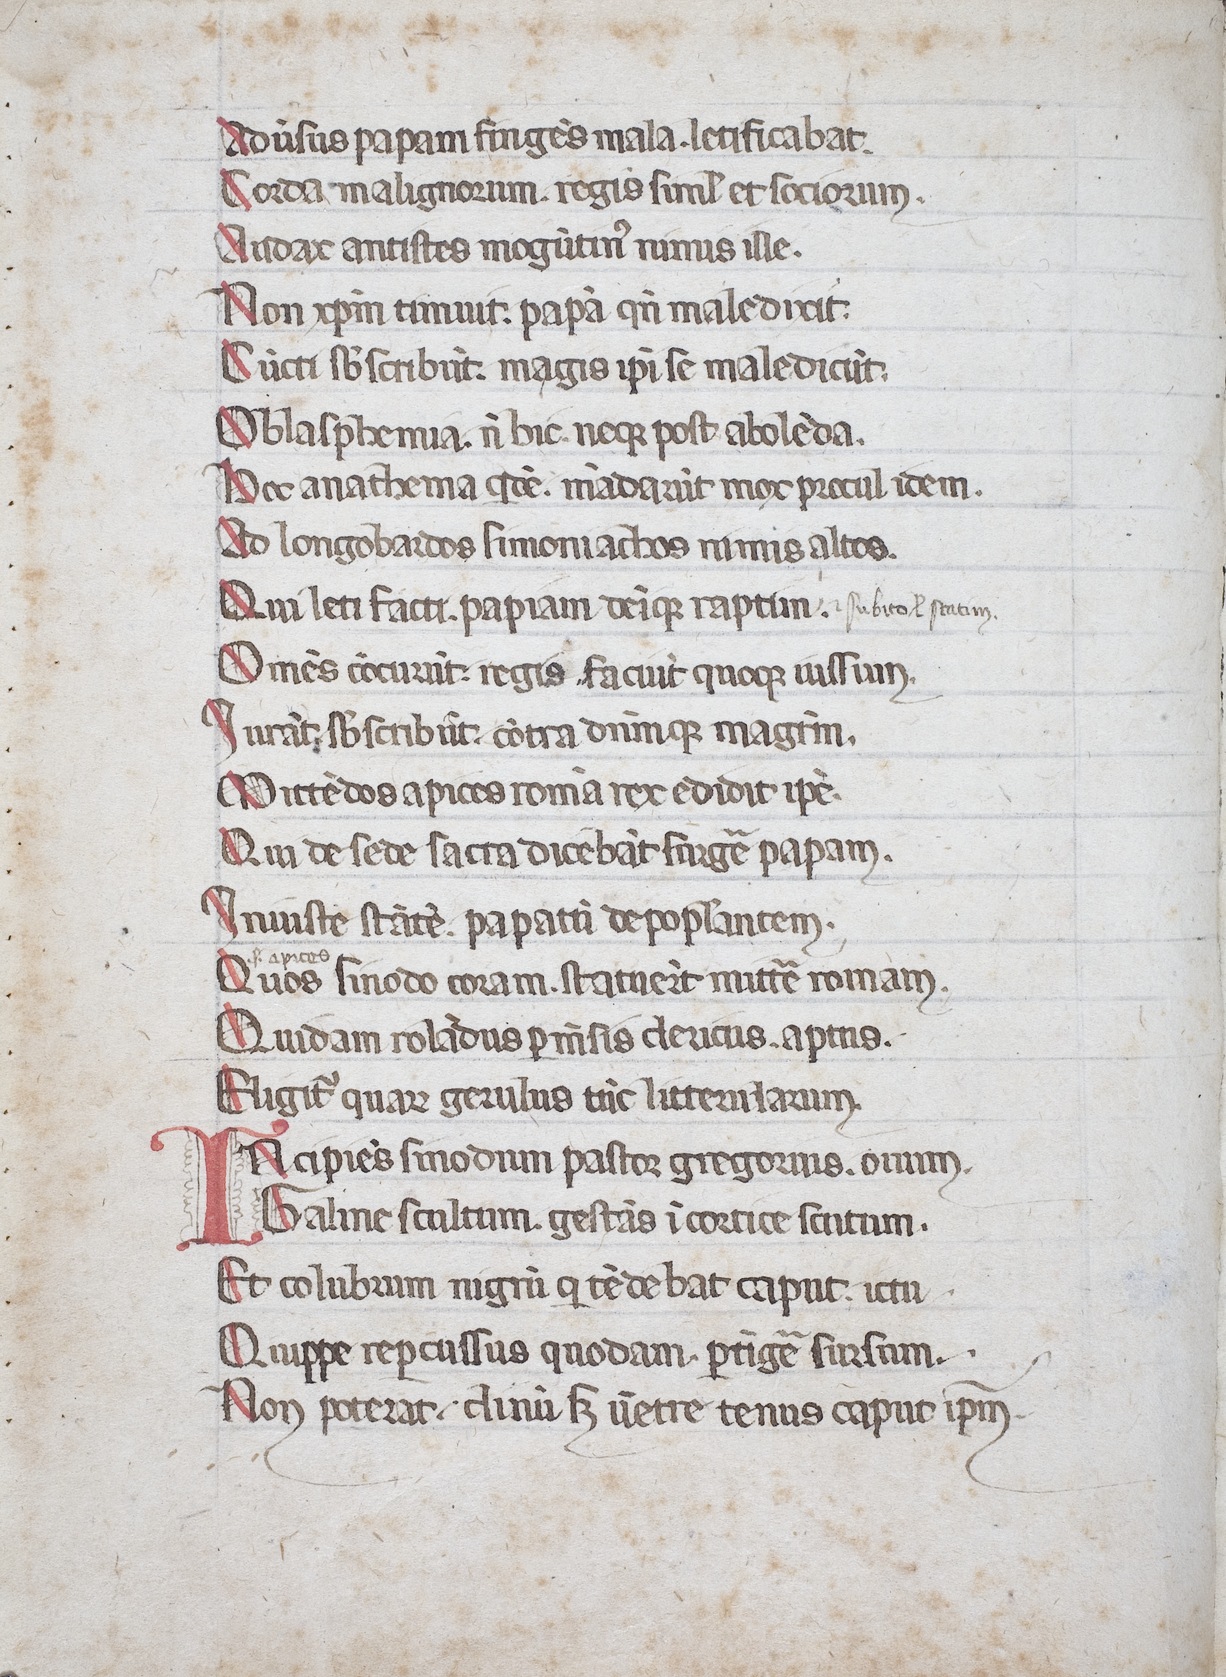 Adūsus papam fingēs mala . letificabat.
Corda malignorum . regis simul et sociorum .
Audax antistes mogūtinꝰ nimus ille .
Non xp̄m timuit . papā qn̄ maledixit .
Cūcti sb̄scribūt . magis ip̄i se maledicūt .
O blasphemia . n̄ hic . neqꝫ post abolēda .
Hoc anathema q̄dē . mādarūt mox procul idem .
Ad longobardos simoniachos nimis altos .
Qui leti facti . papiam deīqꝫ raptim . subito ł statim .
Om̄es cōcurūt . regis . faciūt quoqꝫ iussum .
Jurāt . sb̄scribūt . cōtra dn̄mqꝫ magrm̄ .
Mittēdos apices romā rex edidit ip̄e .
Qui de sede sacra dicebāt surgē papam .
Iniuste stātē . papatū depop̄lantem .
s . apices
Quos sinodo coram . statuerīt mittē romam .
Quidam rolādus pm̄sis clericus . aptus .
Eligit᷑ quarꝫ gerulus tūc litterularum .
INcipiēs sinodum pastor gregorius . ouium .
Galine scultum . gestās ī cortice scutum .
Et colubrum nigrū q tēdebat caput . ictu .
Quippe repcussus quodam . ptīgē sursum .
Non poterat . clinū sꝫ uētre tenus caput ip̄m .